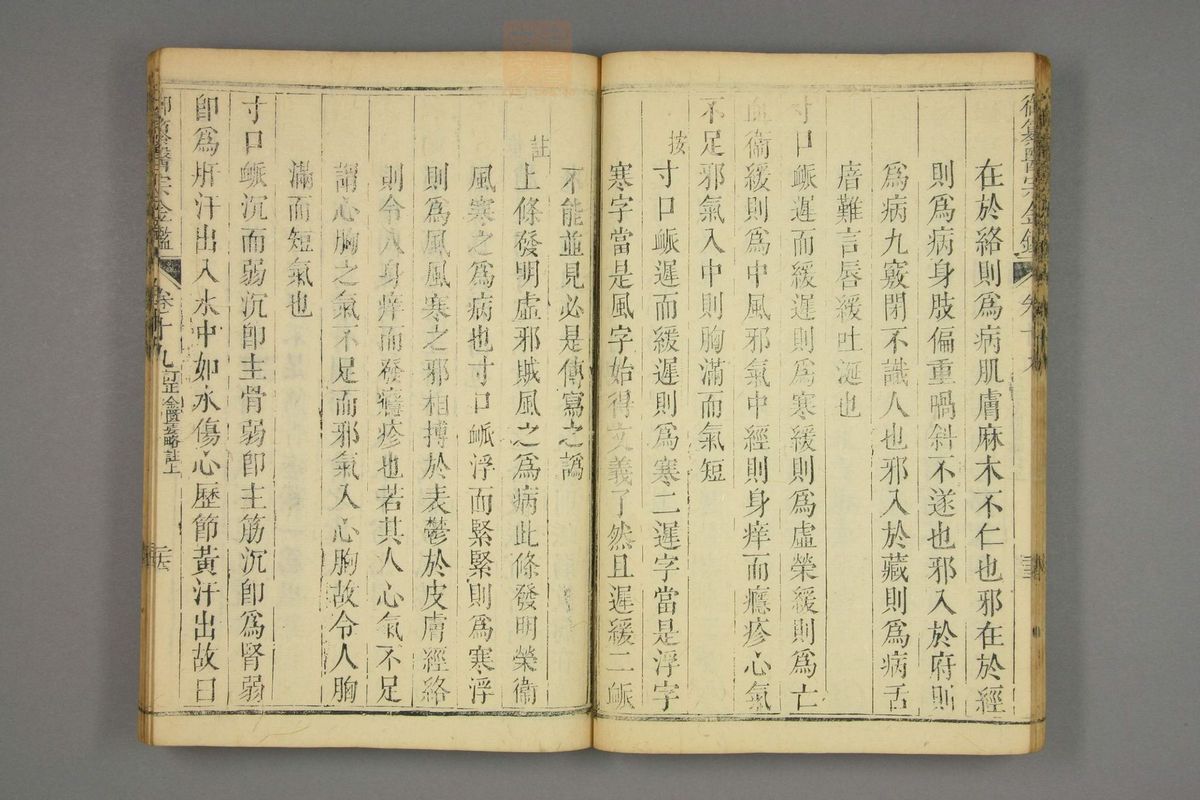 御纂醫宗金鑑
卷十九
在於絡則為病肌膚麻木不仁也邪在於經
則為病身肢偏重喎斜不遂也邪入於府則
為病九竅閉不識人也邪入於藏則為病舌
瘖難言唇緩吐涎也
寸口脈遲而緩遲則為寒緩則為虛榮緩則為亡
血衞緩則為中風邪氣中經則身痒而癮疹心氣
不足邪氣入中則胸滿而氣短
按
寸口脈遲而緩遲則為寒二遲字當是浮字
寒字當是風字始得文義了然且遲緩二脈
不能並見必是傳寫之譌
註
上條發明虛邪賊風之為病此條發明榮衞
風寒之為病也寸口脈浮而緊緊則為寒浮
則為風風寒之邪相搏於表鬱於皮膚經絡
則令人身痒而發癮疹也若其人心氣不足
謂心胸之氣不足而邪氣入心胸故令人胸
滿而短氣也
寸口脈沉而弱沉卽主骨弱卽主筋沉卽為腎弱
卽為肝汗出入水中如水傷心歷節黃汗出故曰
御纂醫宗金鑑
卷十九
訂正金匱要略註上